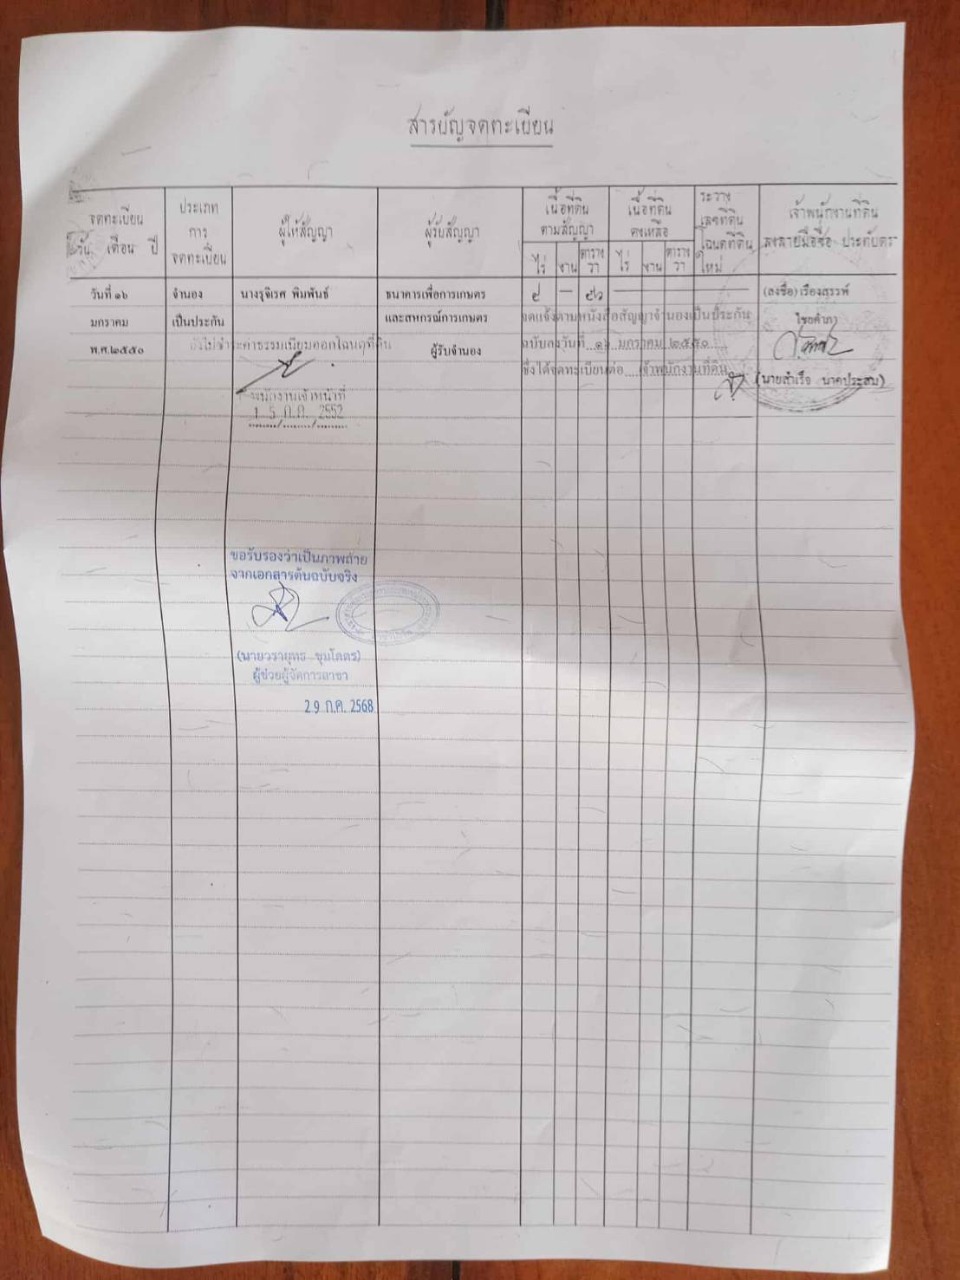 สารบัญจดทะเบียน
จดทะเบียน
วัน เดือน ปี
ประเภท
การ
จดทะเบียน
ผู้ให้สัญญา
ผู้รับสัญญา
เนื้อที่ดิน
ตามสัญญา
ไร่ งาน ตาราง
วา
เนื้อที่ดิน
คงเหลือ
ไร่ งาน ตาราง
วา
ระวาง
เลขที่ดิน
โฉนดที่ดิน
ใหม่
เจ้าพนักงานที่ดิน
ลงลายมือชื่อ ประทับตรา
วันที่ ๑๖ จำนอง นางรุจิเรศ พิมพันธ์ ธนาคารเพื่อการเกษตร ๙ — ๙๖ (ลงชื่อ) เรืองสุรวรรห์
มกราคม เป็นประกัน และสหกรณ์การเกษตร จดแจ้งตามหนังสือสัญญาจำนองเป็นประกัน ไชยคำภา
พ.ศ.๒๕๕๐ ยังไม่ชำระค่าธรรมเนียมออกโฉนดที่ดิน ผู้รับจำนอง ฉบับลงวันที่ ๑๖ มกราคม ๒๕๕๐
ซึ่งได้จดทะเบียนต่อ เจ้าพนักงานที่ดิน
(นายสำเร็จ นาคประสม)
พนักงานเจ้าหน้าที่
1 5 ก.ค. 2552
ขอรับรองว่าเป็นภาพถ่าย
จากเอกสารต้นฉบับจริง
(นายวรายุทธ ชุมโคตร)
ผู้ช่วยผู้จัดการสาขา
29 ก.ค. 2568